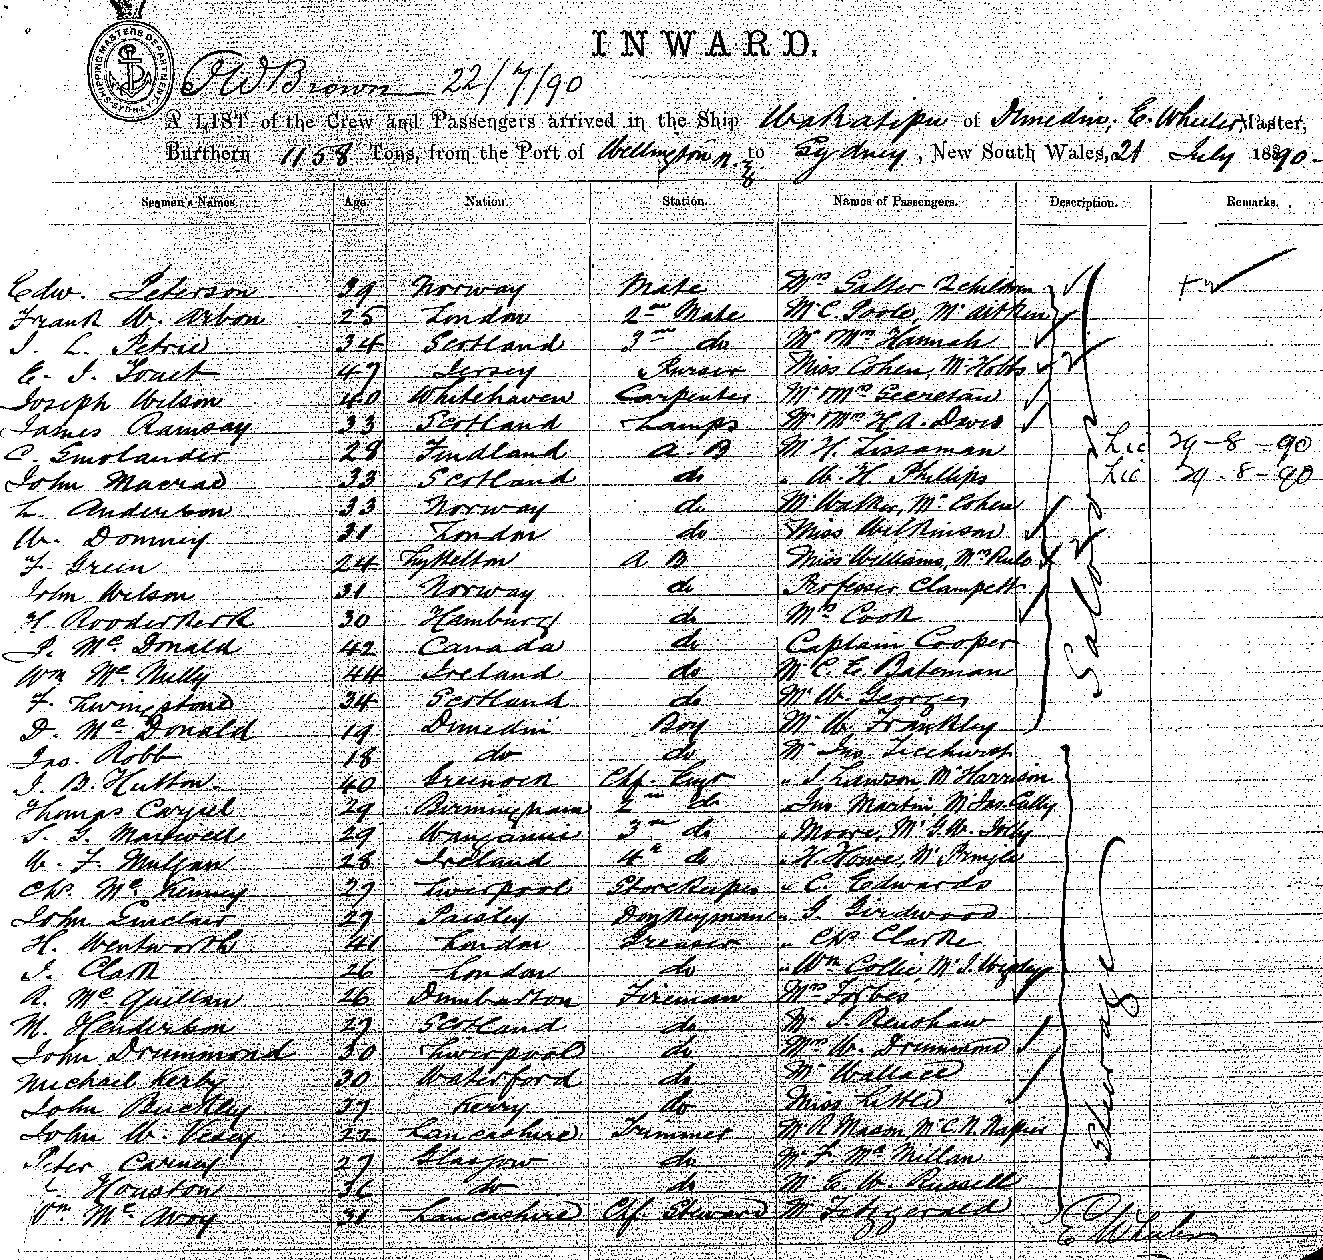 INWARD.
SHIPPING MASTERS DEPARTMENT SYDNEY
Brown 22/7/90
A LIST of the Crew and Passengers arrived in the Ship Wakatipu of Dunedin, E. Wheeler Master,
Burthern 1158 Tons, from the Port of Wellington N.Z. to Sydney, New South Wales, 21 July 1890
Seamen's Names. Age. Nation. Station. Names of Passengers. Description. Remarks.
Edw. Peterson 39 Norway Mate Mrs Salter 2 children
Frank W. Arbon 25 London 2nd Mate Mr C. Poole, Mr Aitken
J. L. Petrie 34 Scotland 3rd do Mr & Mrs Hannah
C. J. 47 Jersey Purser Miss Cohen, Mr Hobbs
Joseph Wilson 40 Whitehaven Carpenter Mr & Mrs Secretan
James Ramsay 33 Scotland Lamps Mr & Mrs H. A. Davis
C. Smolander 28 Findland A.B Mr H. Lissaman Lic 29-8-90
John Macrae 33 Scotland do " W. H. Phillips Lic 29-8-90
L. Anderson 33 Norway do Mr Walker, Mr Cohen
W. Domney 31 London do Miss Wilkinson
F. Green 24 Lyttelton A B Miss Williams, Mrs
John Wilson 31 Norway do Professor Clampett
H. Rooderkerk 30 Hamburg do Mrs Cook
J. Mc Donald 42 Canada do Captain Cooper
Wm Mc Nilly 44 Ireland do Mr C. E. Bateman
F. Livingstone 34 Scotland do Mr W. George
D. Mc Donald 19 Dunedin Boy Mr W. Frankley
Jas. Robb 18 do do Mr Jas. Ticehurst
J. B. Hutton 40 Greenock Chf. Engr " J. Lawson Mr Harrison
Thomas Cargill 29 Birmingham 2nd do " Jno. Martin Mr Jas. Cally
S. G. Maxwell 29 Wanganui 3rd do " Moore, Mr G. W. Jolly
W. F. Mulgan 28 Ireland 4th do " H. Howe, Mr Pringle
Chs. Mc Kenney 27 Liverpool Storekeeper " C. Edwards
John Sinclair 27 Paisley Donkeyman " G. Girdwood
H. Wentworth 41 London Greaser " Chs Clarke
J. Clark 26 London do " Wm Collie, Mr J. Wigley
A. Mc Quillan 26 Dumbarton Fireman Mrs Forbes
M. Henderson 27 Scotland do Mr J. Renshaw
John Drummond 30 Liverpool do Mrs W. Drummond
Michael Kerby 30 Waterford do Mr Wallace
John Buckley 37 Kerry do Miss Little
John W. Vesey 22 Lancashire Trimmer Mr R Mason, Mr C. N. Napier
Peter Carney 27 Glasgow do Mr F. Mc Millan
Houston 36 do do Mr E. W. Russell
Wm Mc Avoy 31 Lancashire Chf. Steward Mr Fitzgerald
Saloon
Steerage
E Wheeler